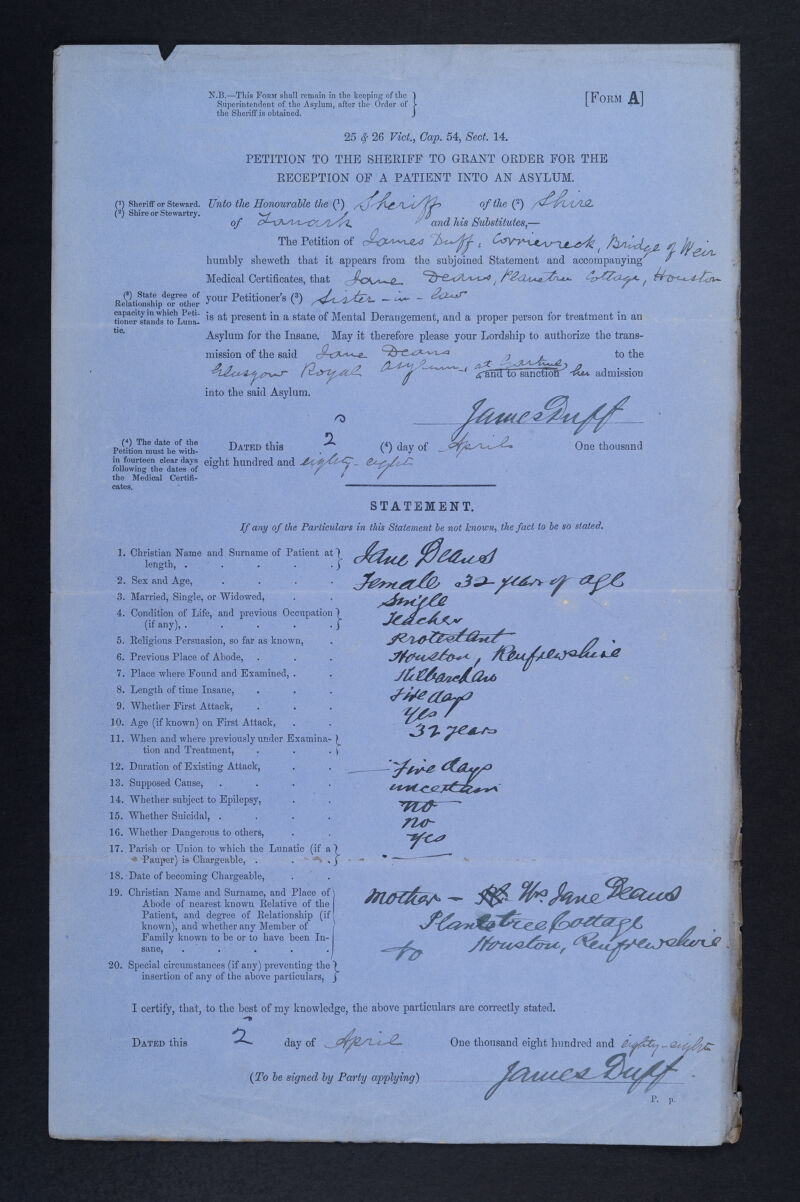 N.B.—This Form shall remain in the keeping of the
Superintendent of the Asylum, after the Order of
the Sheriff is obtained.
[Form A]
25 & 26 Vict., Cap. 54, Sect. 14.
PETITION TO THE SHERIFF TO GRANT ORDER FOR THE
RECEPTION OF A PATIENT INTO AN ASYLUM.
(1) Sheriff or Steward.
(2) Shire or Stewartry.
Unto the Honourable the (1) Sheriff of the (2) Shire
of Lanark and his Substitutes,—
The Petition of James Duff, Corrievreck, Bridge of Weir
humbly sheweth that it appears from the subjoined Statement and accompanying
Medical Certificates, that Jane Deans, Planetree Cottage, Houston
(3) State degree of
Relationship or other
capacity in which Peti-
tioner stands to Luna-
tic.
your Petitioner's (3) Sister-in-law
is at present in a state of Mental Derangement, and a proper person for treatment in an
Asylum for the Insane. May it therefore please your Lordship to authorize the trans-
mission of the said Jane Deans to the
Glasgow Royal Asylum, at Gartnavel and to sanction her admission
into the said Asylum.
James Duff
(4) The date of the
Petition must be with-
in fourteen clear days
following the dates of
the Medical Certifi-
cates.
Dated this 2 (4) day of April One thousand
eight hundred and eighty-eight
STATEMENT.
If any of the Particulars in this Statement be not known, the fact to be so stated.
1. Christian Name and Surname of Patient at length, . . . . . Jane Deans
2. Sex and Age, . . . . Female 32 years of age
3. Married, Single, or Widowed, . . Single
4. Condition of Life, and previous Occupation (if any), . . . . . Teacher
5. Religious Persuasion, so far as known, . Protestant
6. Previous Place of Abode, . . . Houston, Renfrewshire
7. Place where Found and Examined, . . Kilbarchan
8. Length of time Insane, . . . Five days
9. Whether First Attack, . . . Yes
10. Age (if known) on First Attack, . . 32 years
11. When and where previously under Examina-
tion and Treatment, . . . —
12. Duration of Existing Attack, . . Five days
13. Supposed Cause, . . . . uncertain
14. Whether subject to Epilepsy, . . no
15. Whether Suicidal, . . . . no
16. Whether Dangerous to others, . . Yes
17. Parish or Union to which the Lunatic (if a
Pauper) is Chargeable, . . . . —
18. Date of becoming Chargeable, . .
19. Christian Name and Surname, and Place of
Abode of nearest known Relative of the
Patient, and degree of Relationship (if
known), and whether any Member of
Family known to be or to have been In-
sane, . . . . .
Mother — Mrs. Jane Deans
Planetree Cottage
Houston, Renfrewshire.
no
20. Special circumstances (if any) preventing the
insertion of any of the above particulars,
I certify, that, to the best of my knowledge, the above particulars are correctly stated.
Dated this 2 day of April One thousand eight hundred and eighty-eight
(To be signed by Party applying) James Duff.
P. p.